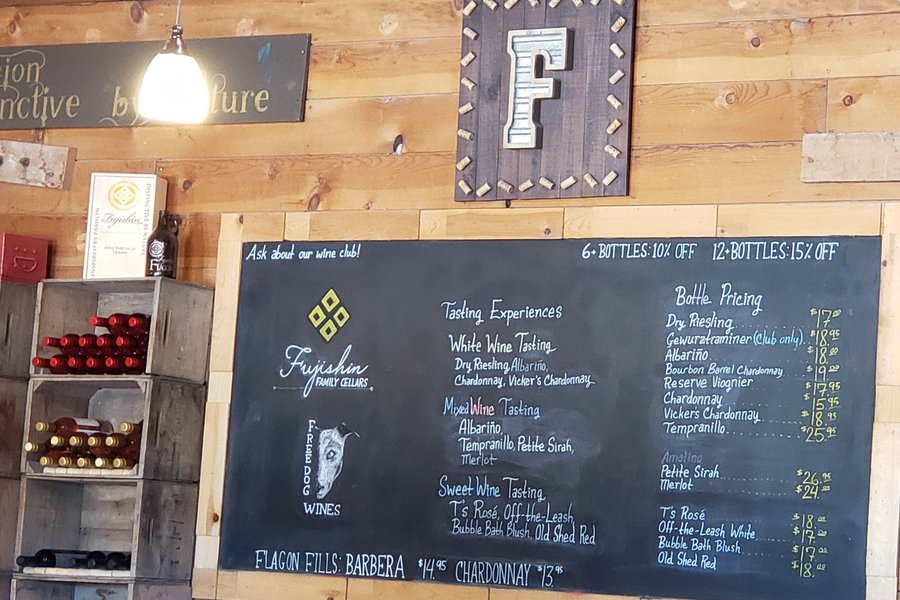 ion
nctive by
ure
F
Fujishin
INSPIRED BY PASSION
DISTINCTIVE BY NATURE
Ask about our wine club!
6+ BOTTLES: 10% OFF 12+ BOTTLES: 15% OFF
Fujishin
FAMILY CELLARS
FREE DOG
WINES
Tasting Experiences
White Wine Tasting
Dry Riesling, Albariño,
Chardonnay, Vicker's Chardonnay
Mixed Wine Tasting
Albariño,
Tempranillo, Petite Sirah,
Merlot
Sweet Wine Tasting
T's Rosé, Off-the-Leash
Bubble Bath Blush, Old Shed Red
Bottle Pricing
Dry Riesling $17.00
Gewurztraminer (Club only) $18.95
Albariño $18.00
Bourbon Barrel Chardonnay $19.00
Reserve Viognier $17.95
Chardonnay $15.95
Vicker's Chardonnay $18.95
Tempranillo $25.95
Amatino
Petite Sirah $26.95
Merlot $24.00
T's Rosé $18.00
Off-the-Leash White $17.00
Bubble Bath Blush $17.00
Old Shed Red $18.00
FLAGON FILLS: BARBERA $14.95 CHARDONNAY $13.95